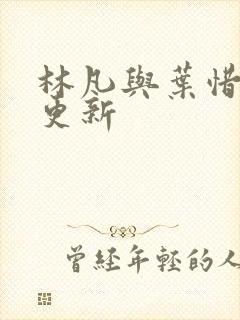 林凡與葉惜
更新
曾經年輕的人